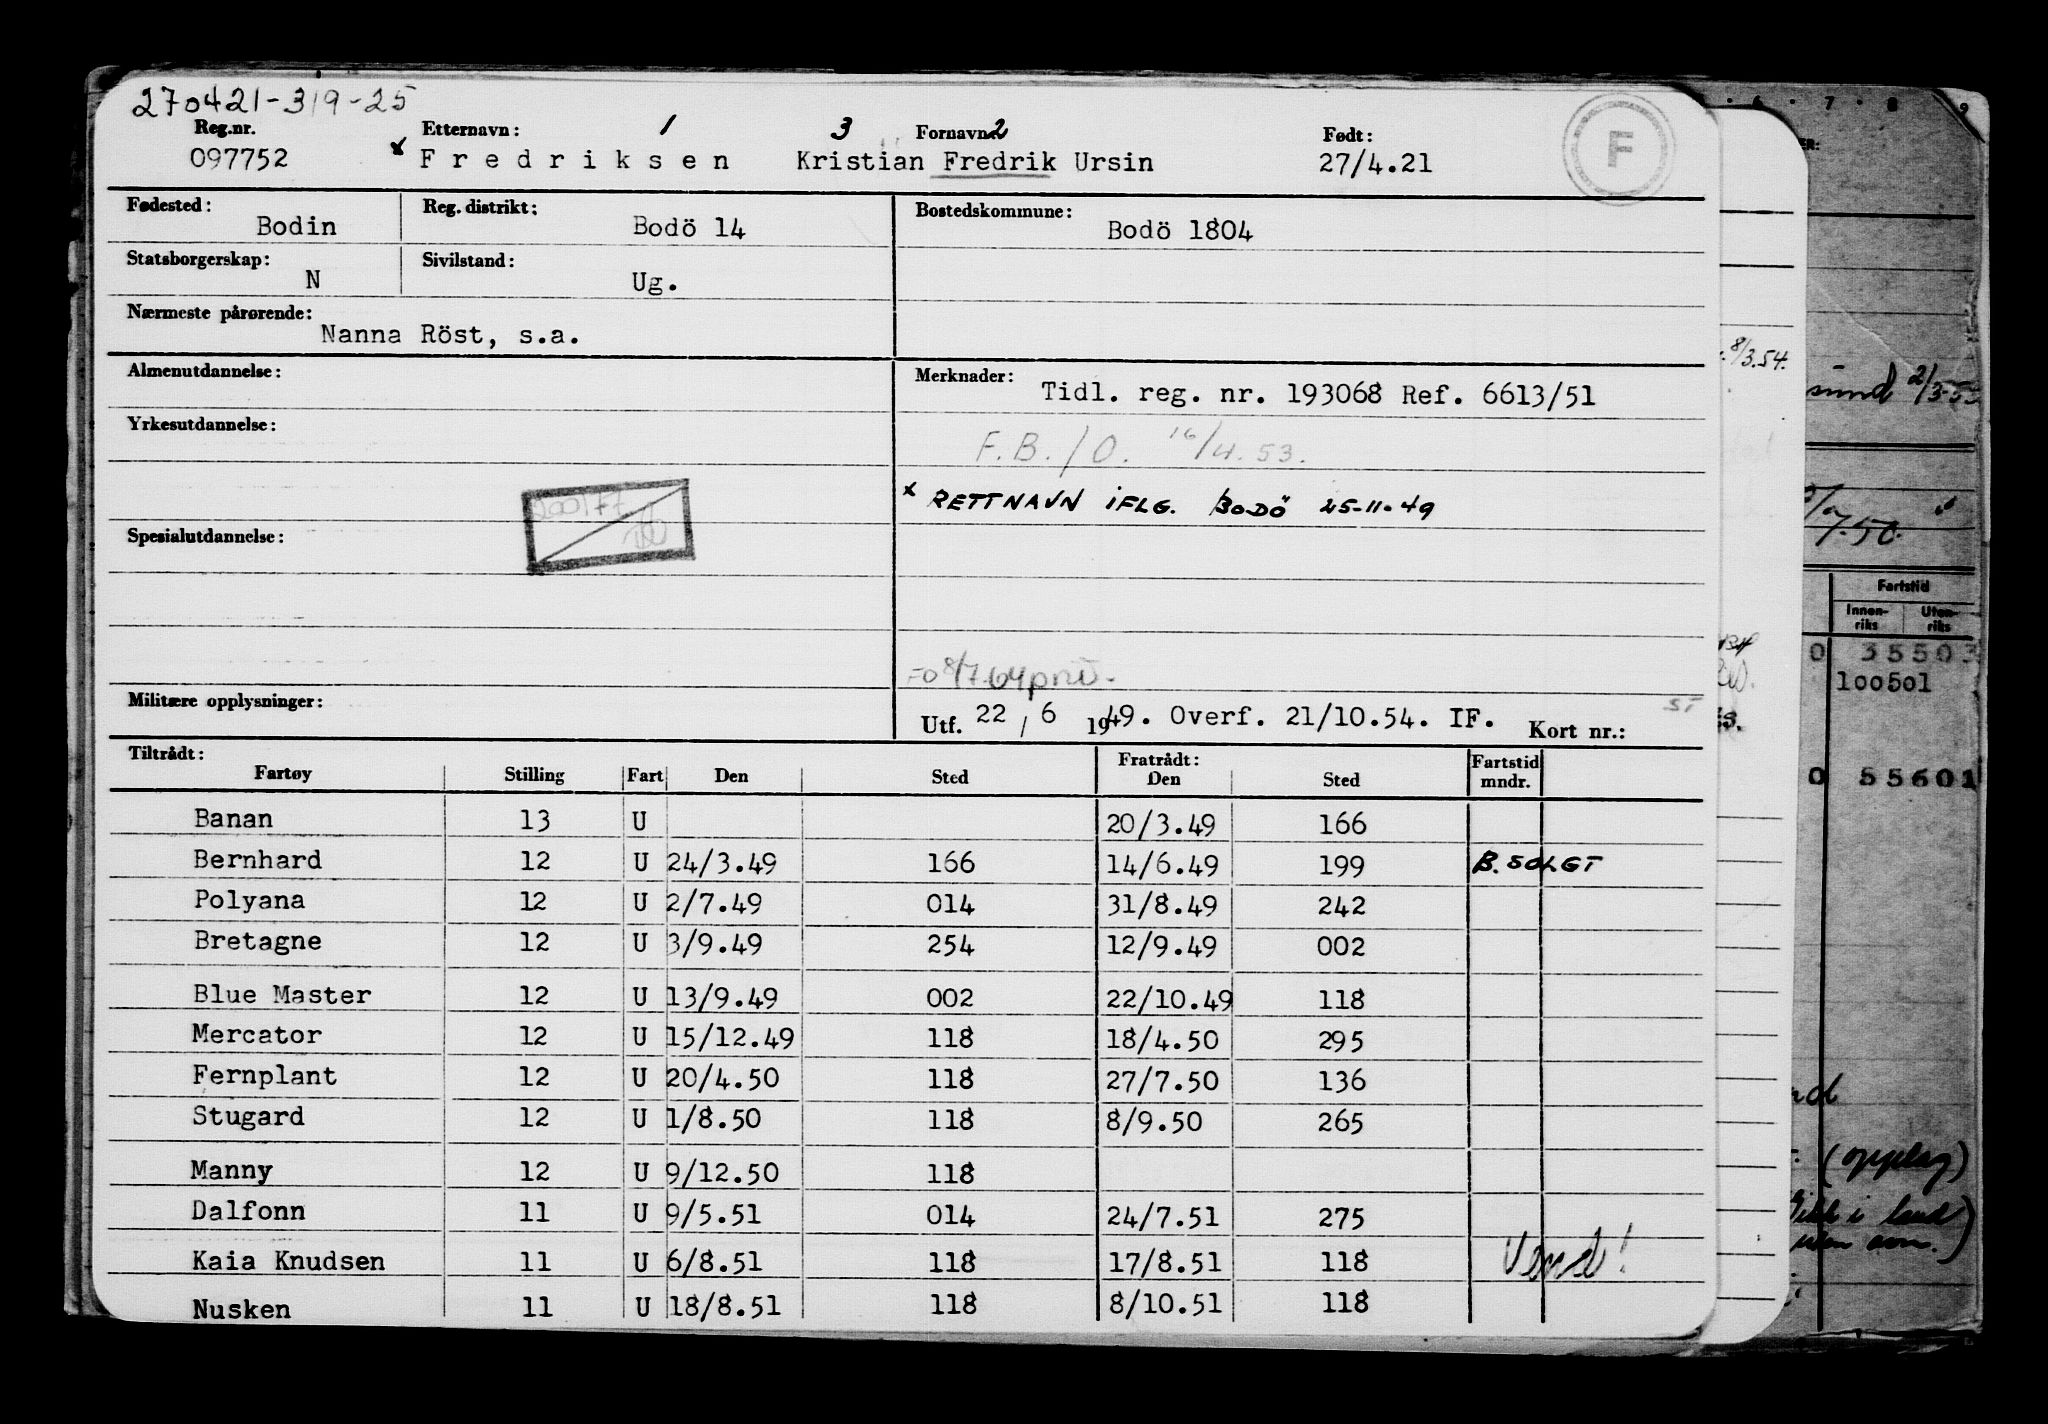 270421-319-25
Reg.nr. Etternavn: 1 3 Fornavn: 2 Født:
097752 x Fredriksen Kristian Fredrik Ursin 27/4.21 F
Fødested: Bodin Reg. distrikt: Bodö 14 Bostedskommune: Bodö 1804
Statsborgerskap: N Sivilstand: Ug.
Nærmeste pårørende: Nanna Röst, s.a.
Almenutdannelse: Merknader: Tidl. reg. nr. 193068 Ref. 6613/51
Yrkesutdannelse: F.B./O. 16/4.53.
x RETT NAVN IFLG. BODÖ 25-11-49
Spesialutdannelse:
8/7.64
Militære opplysninger: Utf. 22/6 1949. Overf. 21/10.54. IF. Kort nr.: ST
Tiltrådt: Fratrådt: Fartstid
Fartøy Stilling Fart Den Sted Den Sted mndr.
Banan 13 U 20/3.49 166
Bernhard 12 U 24/3.49 166 14/6.49 199 B. SOLGT
Polyana 12 U 2/7.49 014 31/8.49 242
Bretagne 12 U 3/9.49 254 12/9.49 002
Blue Master 12 U 13/9.49 002 22/10.49 118
Mercator 12 U 15/12.49 118 18/4.50 295
Fernplant 12 U 20/4.50 118 27/7.50 136
Stugard 12 U 1/8.50 118 8/9.50 265
Manny 12 U 9/12.50 118
Dalfonn 11 U 9/5.51 014 24/7.51 275
Kaia Knudsen 11 U 6/8.51 118 17/8.51 118 Vend!
Nusken 11 U 18/8.51 118 8/10.51 118
8/3.54.
6 7 8 9
sund
7.50.
Fartstid
Innen-riks Uten-riks
0 35503
100501
0 55601
(opplag)
i land